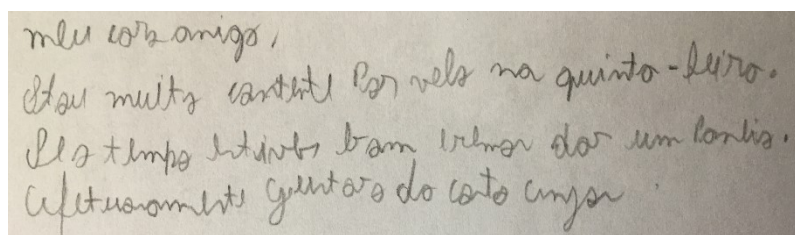 meu caro amigo,
Estou muito contente Por velo na quinta-feira.
Se o tempo estiver bom iremos dar um Pa
Afetuosamente Gustavo do